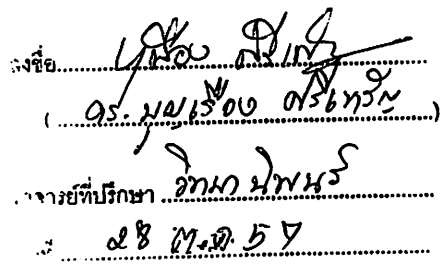 ลงชื่อ
( ดร. บุญเรือง ศรีเหรัญ )
อาจารย์ที่ปรึกษา วิทยานิพนธ์
๒๘ ต.ค. ๕๗